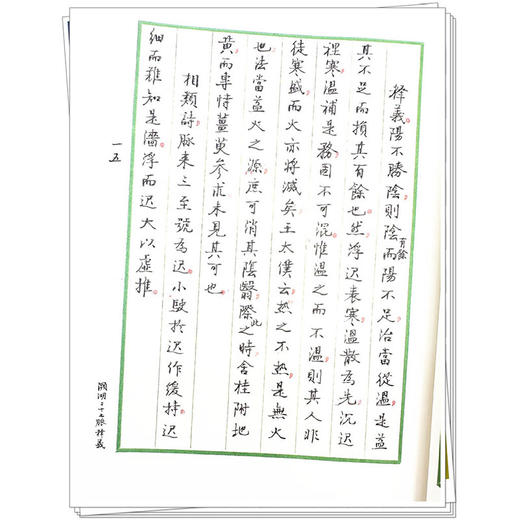 释義陽不勝陰則陰有餘而陽不足治當從温是益
其不足而損其有餘也然浮迟表寒温散為先沉迟
裡寒温補是務固不可混惟温之而不温則其人非
徒寒盛而火亦将滅矣王太僕云热之不热是無火
也法當益火之源庶可消其陰翳際此之時舍桂附地
黄而專恃薑萸参朮未見其可也
相類詩脉来三至號為迟小駛於迟作缓持迟
细而難知是濇浮而迟大以虚推
一五
瀕湖二十七脉释義